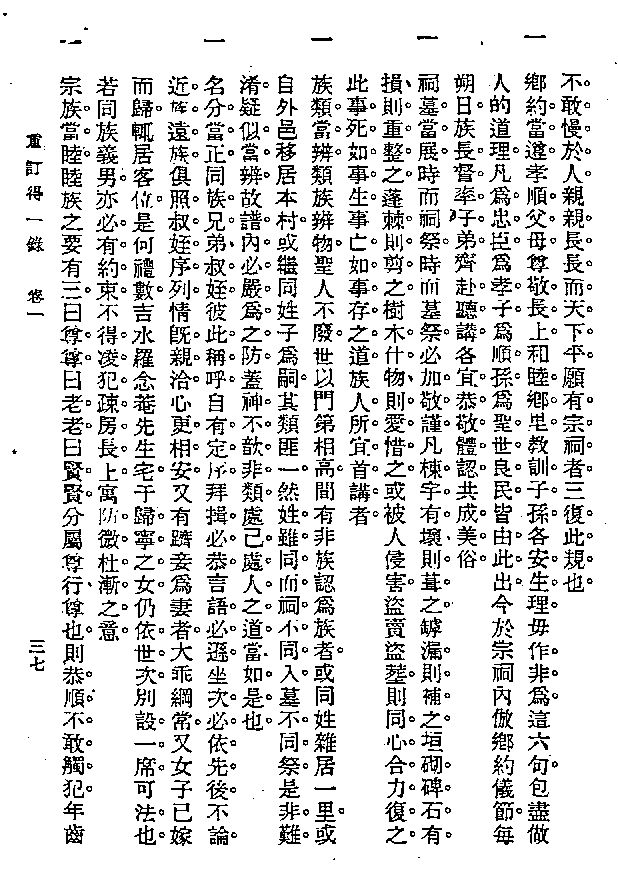 不敢慢於人親親長長而天下平願有宗祠者三復此規也。
一鄉約當遵孝順父母尊敬長上和睦鄉里教訓子孫各安生理毋作非爲這六句包盡做
人的道理凡爲忠臣爲孝子爲順孫爲聖世良民皆由此出今於宗祠內倣鄉約儀節每
朔日族長督率子弟齊赴聽講各宜恭敬體認共成美俗
一祠墓當展時而祠祭時而墓祭必加敬謹凡棟宇有壞則葺之罅漏則補之垣砌碑石有
損則重整之蓬棘則剪之樹木什物則愛惜之或被人侵害盜賣盜葬則同心合力復之
此事死如事生事亡如事存之道族人所宜首講者
一族類當辨類族辨物聖人不廢世以門第相高間有非族認爲族者或同姓雜居一里或
自外邑移居本村或繼同姓子爲嗣其類匪一然姓雖同而祠不同入墓不同祭是非難
淆疑似當辨故譜內必嚴爲之防蓋神不歆非類處己處人之道當如是也
一名分當正同族兄弟叔姪彼此稱呼自有定序拜揖必恭言語必遜坐次必依先後不論
近族遠族俱照叔姪序列情旣親洽心更相安又有躋妾爲妻者大乖綱常又女子已嫁
而歸輒居客位是何禮數吉水羅念菴先生宅于歸寧之女仍依世次別設一席可法也
若同族義男亦必有約束不得凌犯疎房長上寓防微杜漸之意
一宗族當睦睦族之要有三曰尊尊曰老老曰賢賢分屬尊行尊也則恭順不敢觸犯年齒
重訂得一錄 卷一 三七